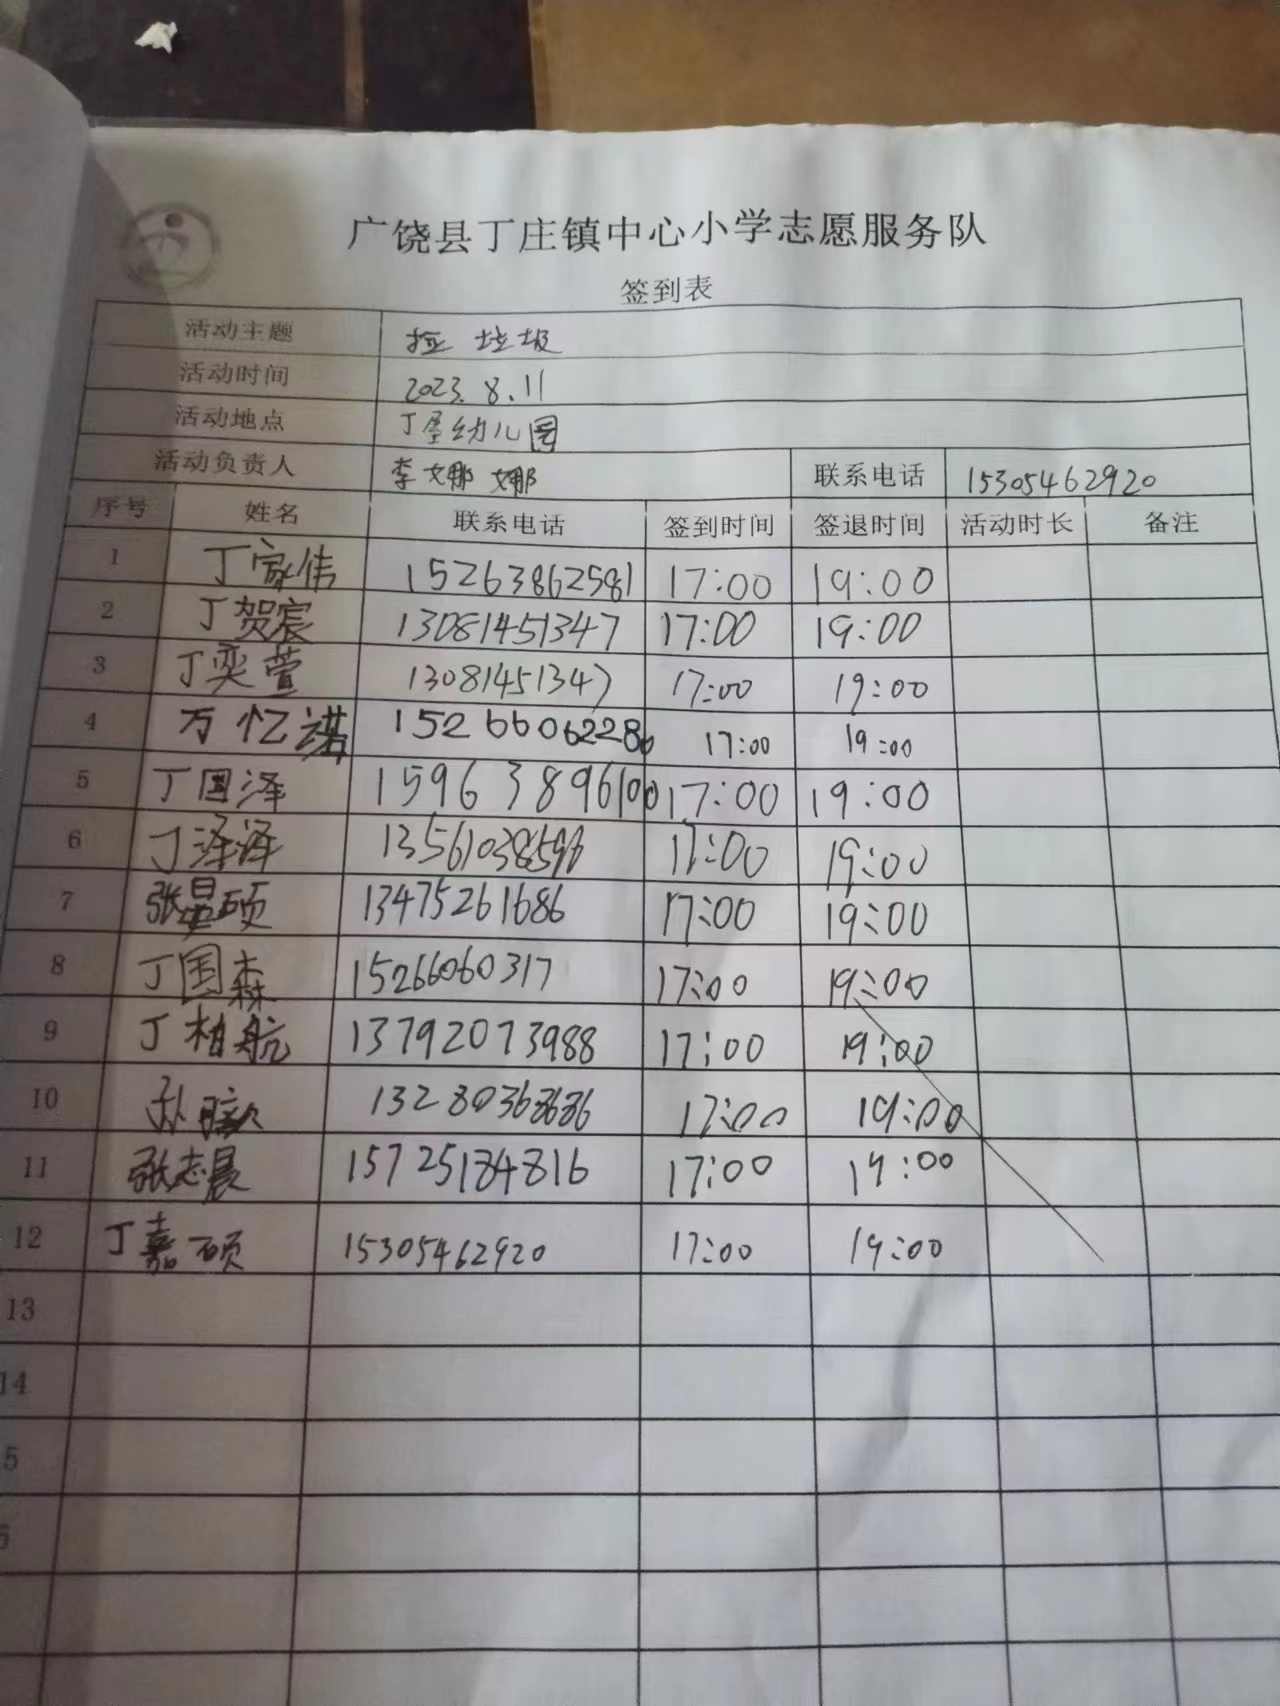 广饶县丁庄镇中心小学志愿服务队
签到表
活动主题 捡 垃圾
活动时间 2023.8.11
活动地点 丁屋幼儿园
活动负责人 李娜娜 联系电话 15305462920
序号 姓名 联系电话 签到时间 签退时间 活动时长 备注
1 丁家伟 15263862581 17:00 19:00
2 丁贺宸 13081451347 17:00 19:00
3 丁奕萱 13081451347 17:00 19:00
4 万忆诺 15266062286 17:00 19:00
5 丁国泽 15963896100 17:00 19:00
6 丁泽泽 13561038596 17:00 19:00
7 张昊硕 13475261686 17:00 19:00
8 丁国森 15266060317 17:00 19:00
9 丁柏航 13792073988 17:00 19:00
10 孙 13280368686 17:00 19:00
11 张志晨 15725184816 17:00 19:00
12 丁嘉硕 15305462920 17:00 19:00
13
14
5